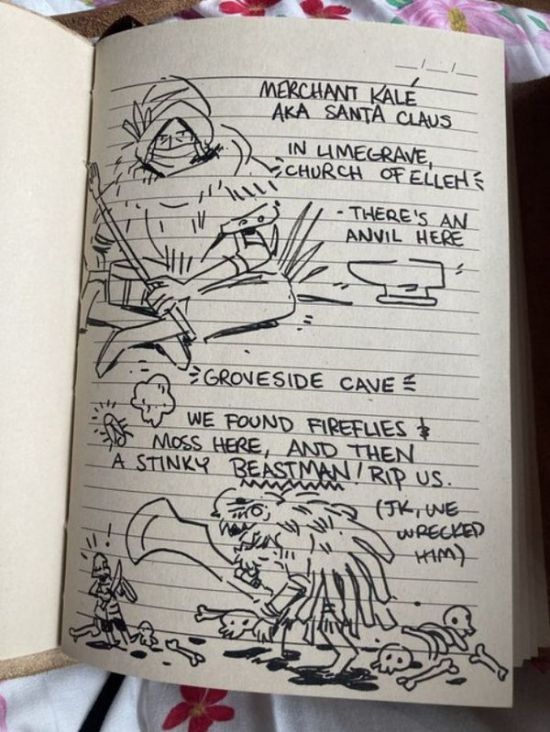 MERCHANT KALÉ
AKA SANTA CLAUS
IN LIMEGRAVE,
CHURCH OF ELLEH
- THERE'S AN
ANVIL HERE
GROVESIDE CAVE
WE FOUND FIREFLIES &
MOSS HERE, AND THEN
A STINKY BEASTMAN! RIP US.
(JK, WE
WRECKED
HIM)
!!